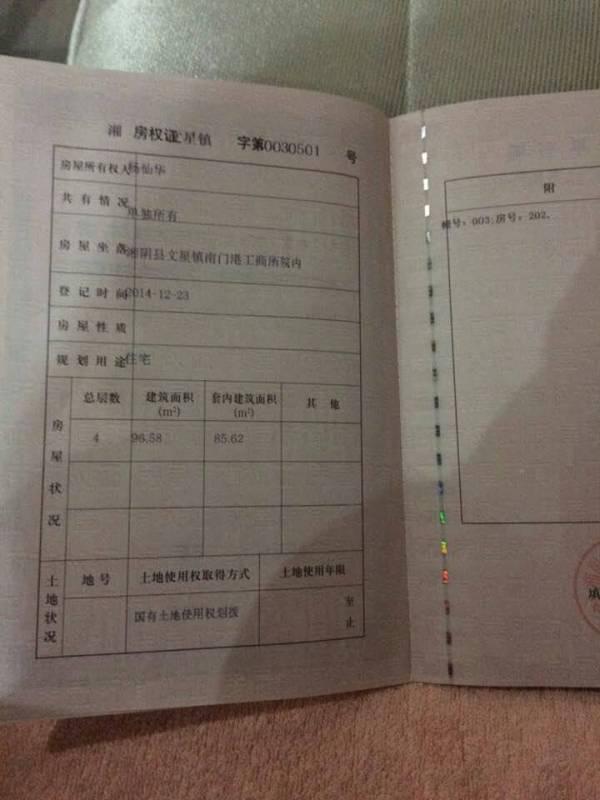 湘 房权证 星镇 字第0030501 号
房屋所有权人 仙华
共有情况 单独所有
房屋坐落 湘阴县文星镇南门港工商所院内
登记时间 2014-12-23
房屋性质
规划用途 住宅
房屋状况
总层数 建筑面积(m²) 套内建筑面积(m²) 其他
4 96.58 85.62
土地状况
地号 土地使用权取得方式 土地使用年限
国有土地使用权划拨 至
止
附
幢号：003;房号：202.
填